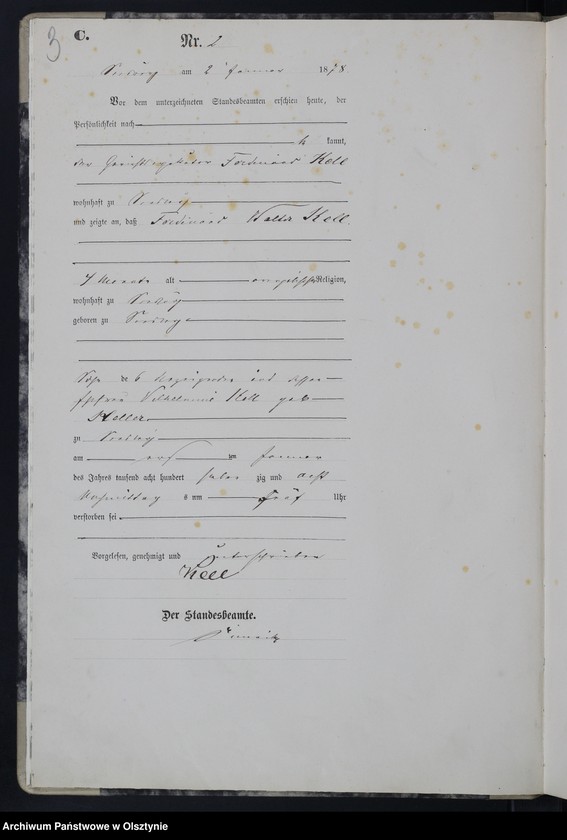 3
C.
Nr. 2
am 2 Januar 1878
Vor dem unterzeichneten Standesbeamten erschien heute, der
Persönlichkeit nach
kannt,
der Ferdinand Kell
wohnhaft zu
und zeigte an, daß Ferdinand Walter Kell
7 Monate alt evangelischer Religion,
wohnhaft zu
geboren zu
Sohn des Anzeigenden und dessen
Ehefrau Wilhelmine Kell geb
Heller
zu
am ersten Januar
des Jahres tausend acht hundert sieben zig und acht
Nachmittag s um fünf Uhr
verstorben sei
Vorgelesen, genehmigt und unterschrieben
Kell
Der Standesbeamte.
Archiwum Państwowe w Olsztynie